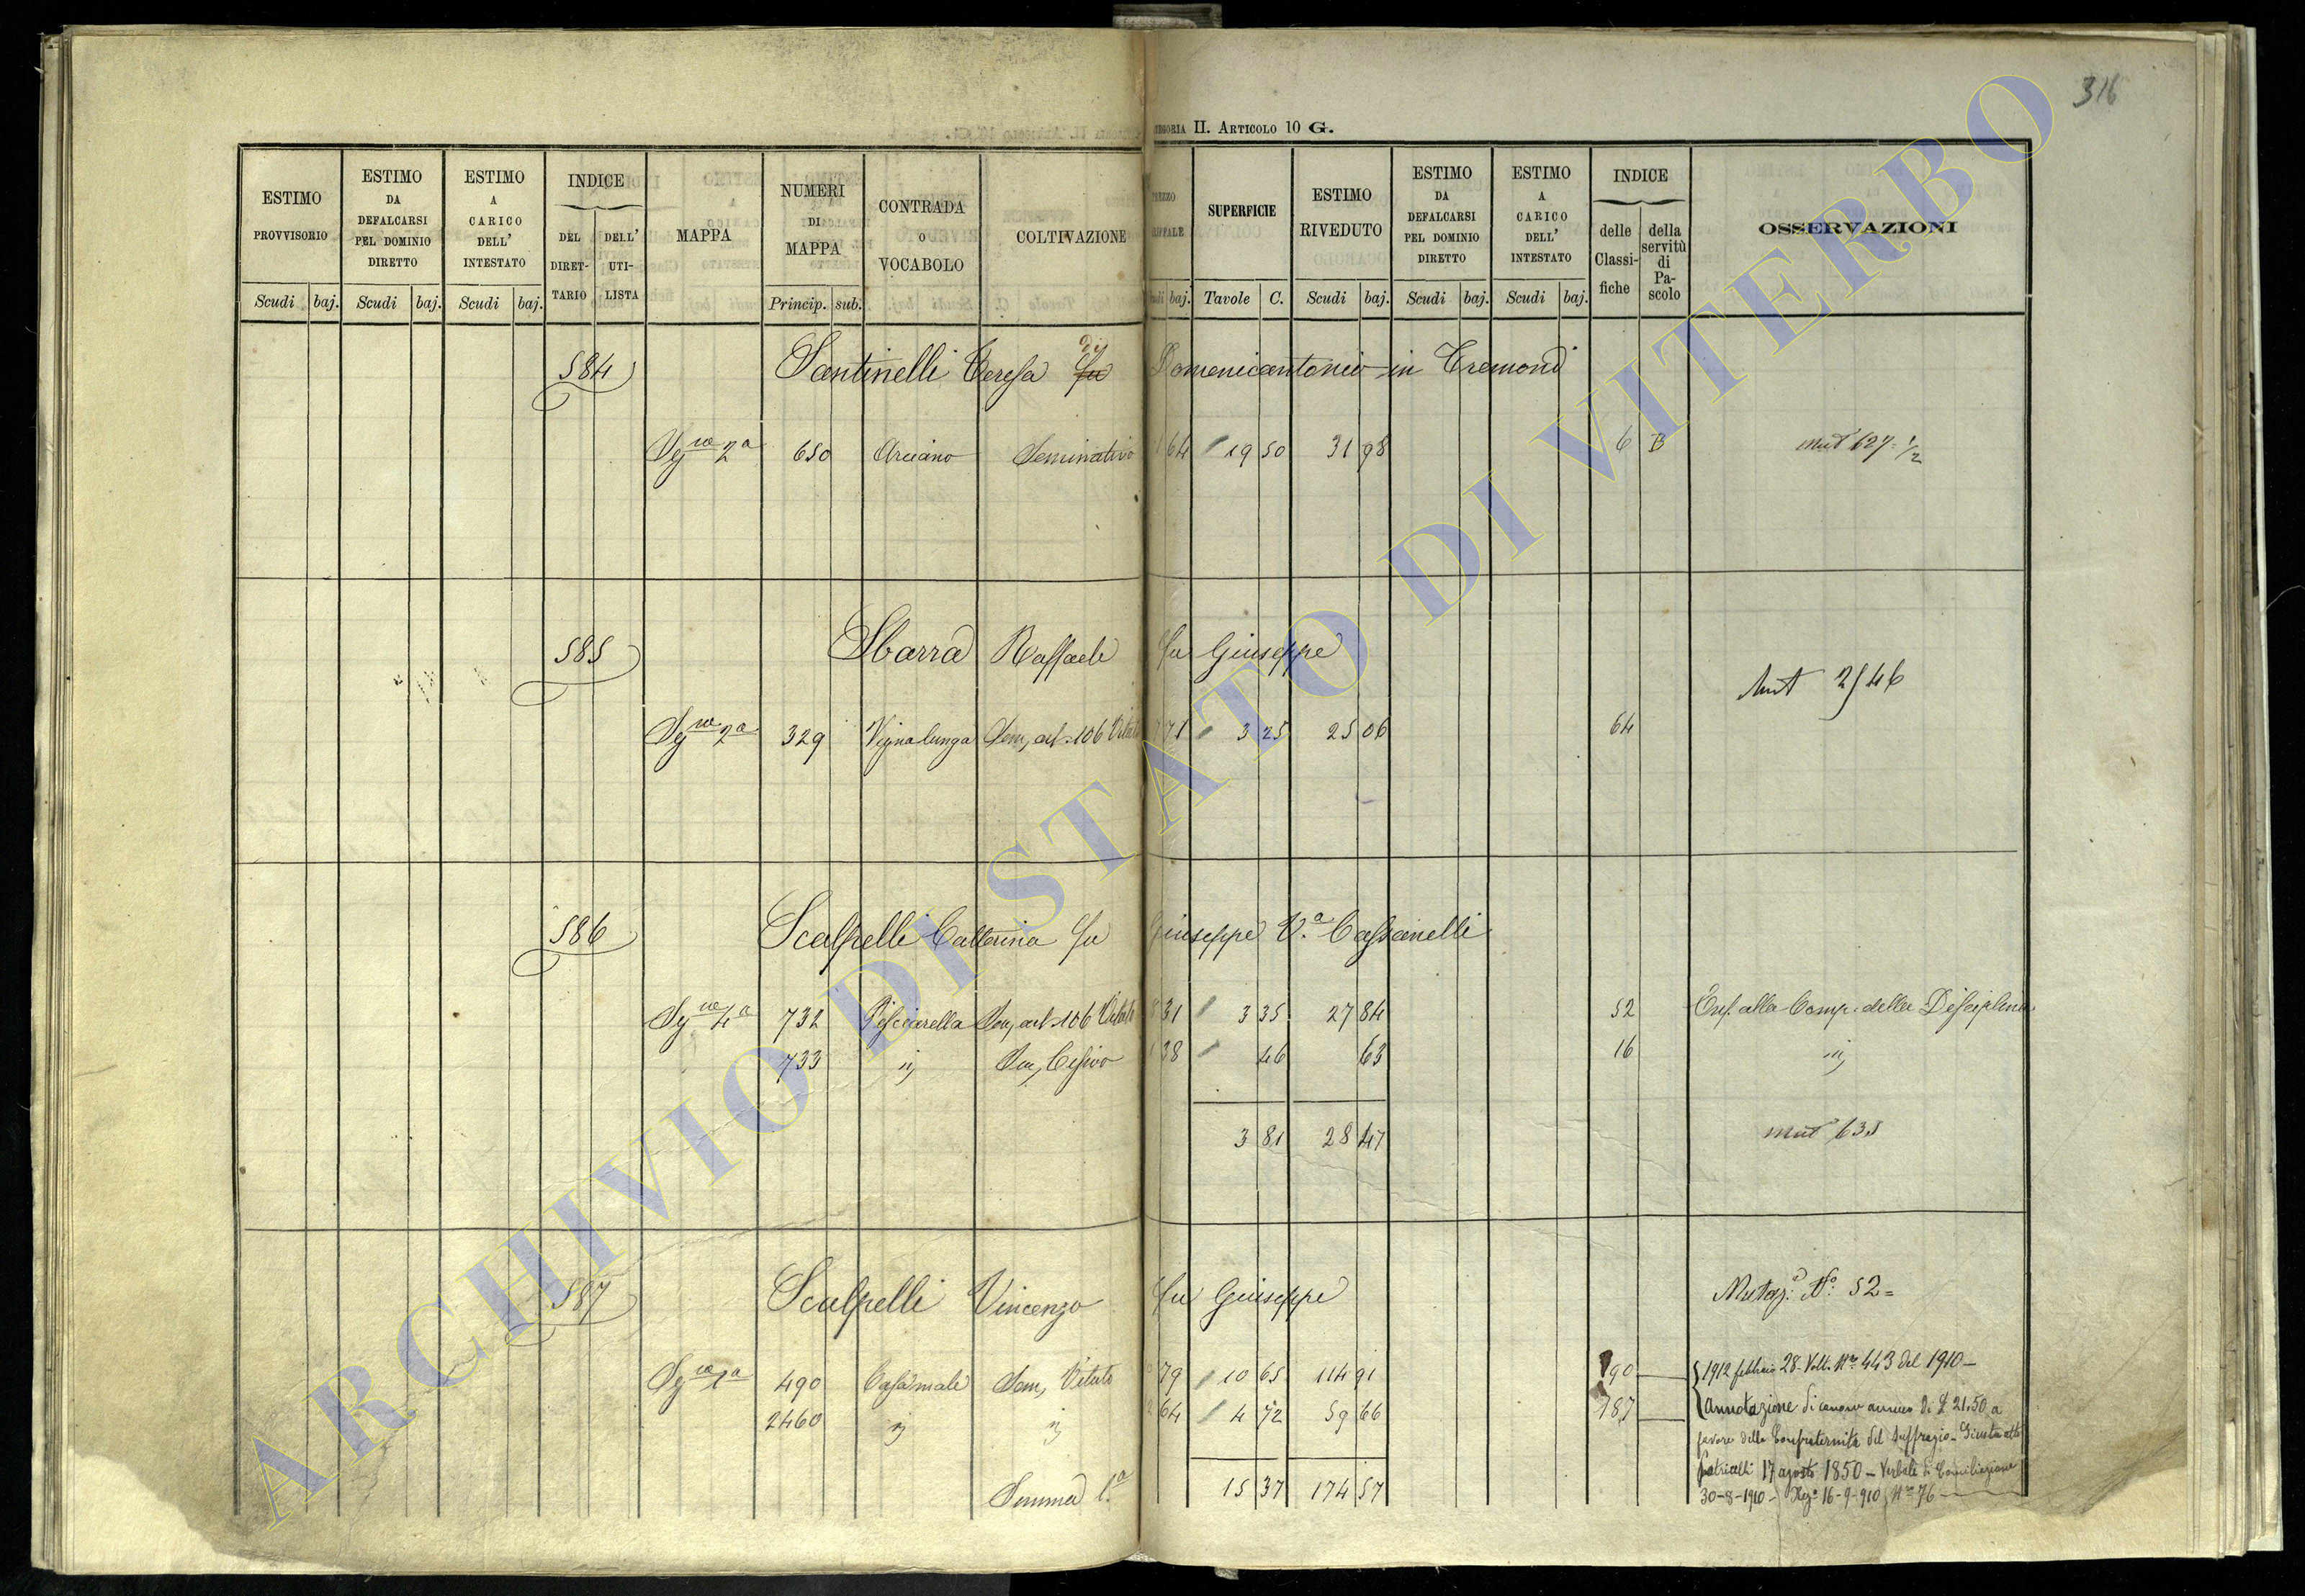 316
CATEGORIA II. ARTICOLO 10 G.
ESTIMO PROVVISORIO Scudi baj.
ESTIMO DA DEFALCARSI PEL DOMINIO DIRETTO Scudi baj.
ESTIMO A CARICO DELL' INTESTATO Scudi baj.
INDICE DEL DIRET- TARIO DELL' UTI- LISTA
MAPPA
NUMERI DI MAPPA Princip. sub.
CONTRADA O VOCABOLO
COLTIVAZIONE
baj.
SUPERFICIE Tavole C.
ESTIMO RIVEDUTO Scudi baj.
ESTIMO DA DEFALCARSI PEL DOMINIO DIRETTO Scudi baj.
ESTIMO A CARICO DELL' INTESTATO Scudi baj.
INDICE delle Classi- fiche della servitù di Pa- scolo
OSSERVAZIONI
584 Santinelli Teresa fu di Domenicantonio in Cremoni
2a 650 Arciano Seminativo 1 64 19 50 31 98 6 B Mut 627 1/2
585 Sbarra Raffaele fu Giuseppe
Mut 2546
2a 329 Vignalunga Sem, art. 106 Vitato 71 3 25 25 06 64
586 Scalpelli Catterina fu Giuseppe Va Cassanelli
4a 732 Pisciarella Sem, art. 106 Vitato 31 3 35 27 84 52 Enf. alla Comp. della Disciplina
733 ij Sem, Cesivo 1 38 46 63 16 ij
3 81 28 47 Mut 635
587 Scalpelli Vincenzo fu Giuseppe
Mutaz. No. 52=
1a 490 Casamale Sem, Vitato 79 10 65 114 91 190 1912 febbraio 28. Volt. No 443 del 1910-
2460 ij ij 64 4 72 59 66 187 Annotazione di canone annuo di £ 21.50 a
favore della Confraternita del Suffragio - Giusta atto
Patricelli 17 agosto 1850 - Verbale di Conciliazione
Somma 1a 15 37 174 57 30-8-1910 - Rega 16-9-910 No 76
ARCHIVIO DI STATO DI VITERBO